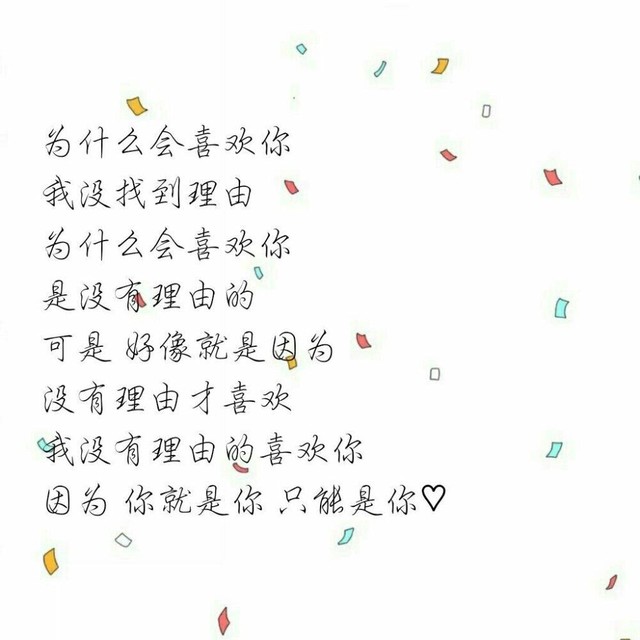 为什么会喜欢你
我没找到理由
为什么会喜欢你
是没有理由的
可是 好像就是因为
没有理由才喜欢
我没有理由的喜欢你
因为 你就是你 只能是你♡